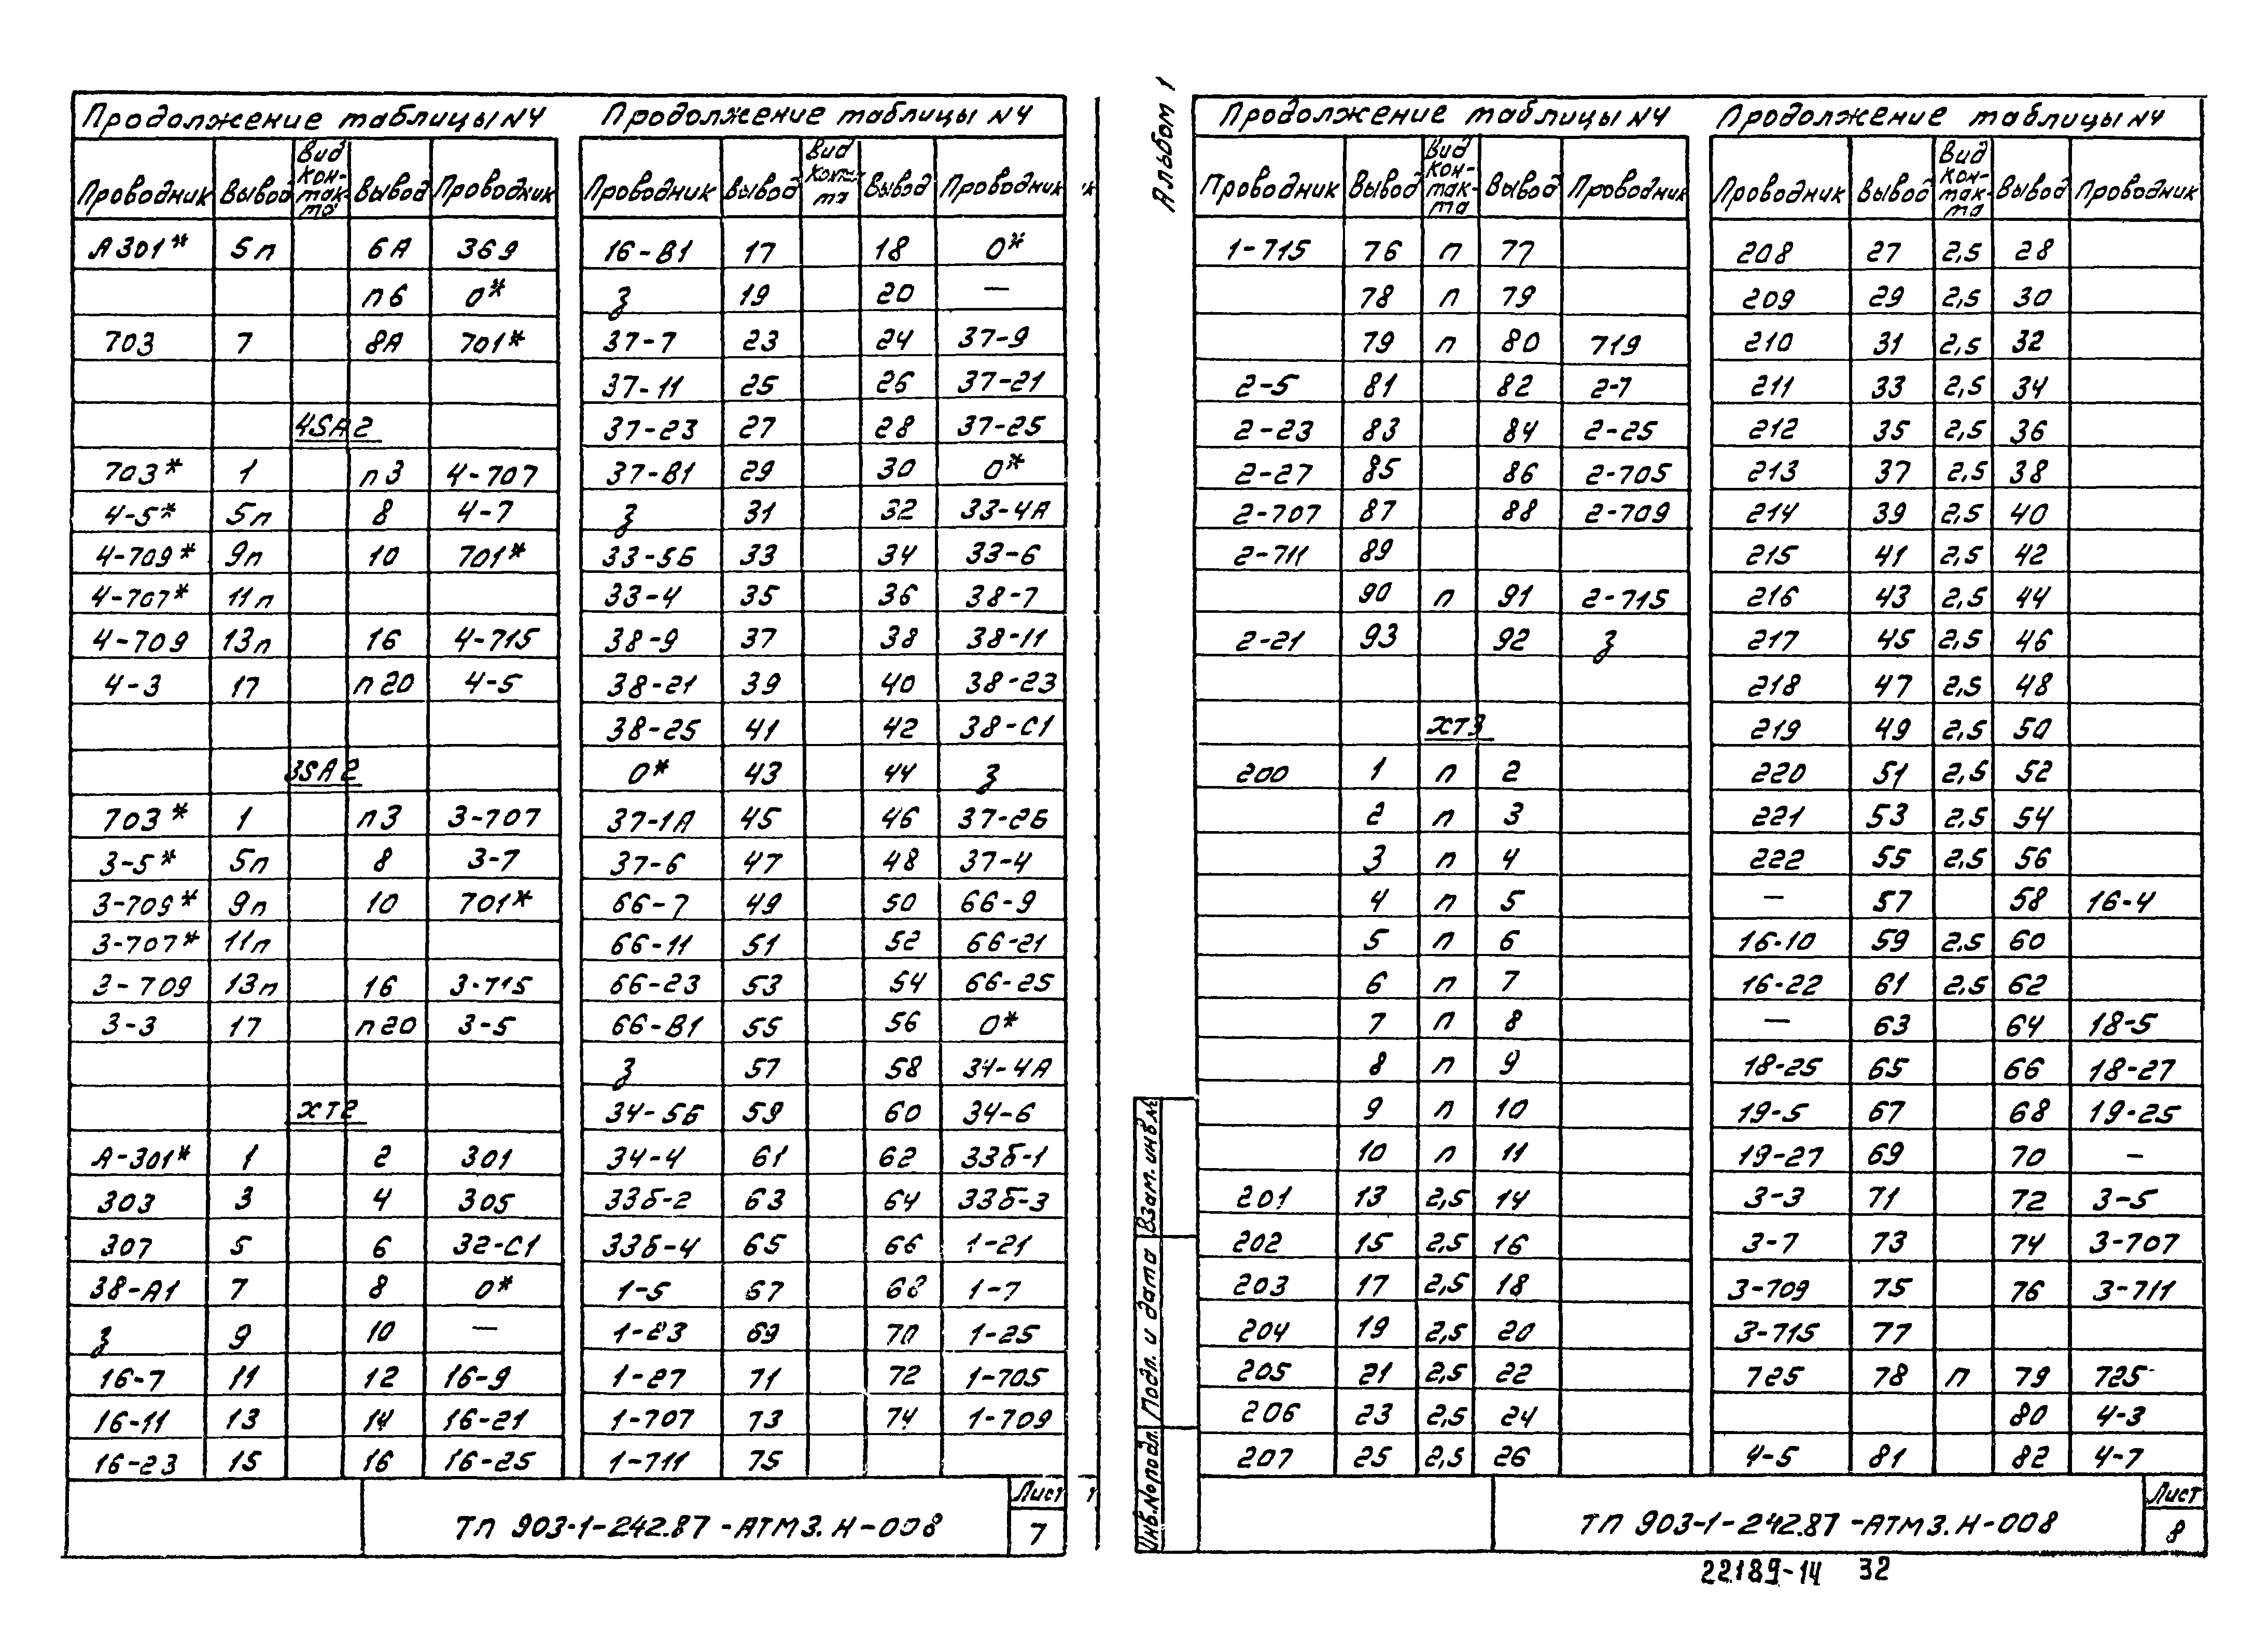 Продолжение таблицы N4
Проводник Вывод Вид кон-так-та Вывод Проводник
А301* 5п 6А 369
п6 0*
703 7 8А 701*
4SA2
703* 1 п3 4-707
4-5* 5п 8 4-7
4-709* 9п 10 701*
4-707* 11п
4-709 13п 16 4-715
4-3 17 п20 4-5
3SA2
703* 1 п3 3-707
3-5* 5п 8 3-7
3-709* 9п 10 701*
3-707* 11п
3-709 13п 16 3-715
3-3 17 п20 3-5
ХТ2
А-301* 1 2 301
303 3 4 305
307 5 6 32-С1
38-А1 7 8 0*
З 9 10 —
16-7 11 12 16-9
16-11 13 14 16-21
16-23 15 16 16-25
Продолжение таблицы N4
Проводник Вывод Вид Вывод Проводник
16-В1 17 18 0*
З 19 20 —
37-7 23 24 37-9
37-11 25 26 37-21
37-23 27 28 37-25
37-В1 29 30 0*
З 31 32 33-4А
33-5Б 33 34 33-6
33-4 35 36 38-7
38-9 37 38 38-11
38-21 39 40 38-23
38-25 41 42 38-С1
0* 43 44 З
37-1А 45 46 37-2Б
37-6 47 48 37-4
66-7 49 50 66-9
66-11 51 52 66-21
66-23 53 54 66-25
66-В1 55 56 0*
З 57 58 34-4А
34-5Б 59 60 34-6
34-4 61 62 33б-1
33б-2 63 64 33б-3
33б-4 65 66 1-21
1-5 67 68 1-7
1-23 69 70 1-25
1-27 71 72 1-705
1-707 73 74 1-709
1-711 75
ТП 903-1-242.87 -АТМ3.Н-008
Лист
7
Альбом 1
Продолжение таблицы N4
Проводник Вывод Вид кон-так-та Вывод Проводник
1-715 76 п 77
78 п 79
79 п 80 719
2-5 81 82 2-7
2-23 83 84 2-25
2-27 85 86 2-705
2-707 87 88 2-709
2-711 89
90 п 91 2-715
2-21 93 92 З
ХТ3
200 1 п 2
2 п 3
3 п 4
4 п 5
5 п 6
6 п 7
7 п 8
8 п 9
9 п 10
10 п 11
201 13 2,5 14
202 15 2,5 16
203 17 2,5 18
204 19 2,5 20
205 21 2,5 22
206 23 2,5 24
207 25 2,5 26
Продолжение таблицы N4
Проводник Вывод Вид кон-так-та Вывод Проводник
208 27 2,5 28
209 29 2,5 30
210 31 2,5 32
211 33 2,5 34
212 35 2,5 36
213 37 2,5 38
214 39 2,5 40
215 41 2,5 42
216 43 2,5 44
217 45 2,5 46
218 47 2,5 48
219 49 2,5 50
220 51 2,5 52
221 53 2,5 54
222 55 2,5 56
— 57 58 16-4
16-10 59 2,5 60
16-22 61 2,5 62
— 63 64 18-5
18-25 65 66 18-27
19-5 67 68 19-25
19-27 69 70 —
3-3 71 72 3-5
3-7 73 74 3-707
3-709 75 76 3-711
3-715 77
725 78 п 79 725
80 4-3
4-5 81 82 4-7
Инв.№подл. Подп. и дата Взам.инв.№
ТП 903-1-242.87 -АТМ3.Н-008
Лист
8
22189-14 32